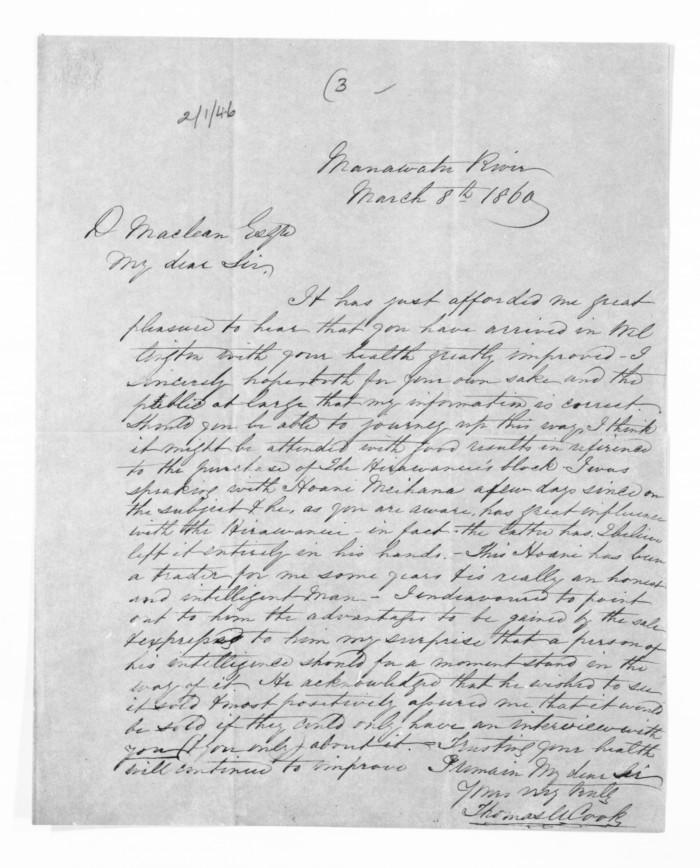 (3 -
2/1/46
Manawatu River
March 8th 1860
D Maclean Esqre
My dear Sir,
It has just afforded me great
pleasure to hear that you have arrived in Wel
lington with your health greatly improved - I
sincerely hope both for your own sake and the
public at large that my information is correct
Should you be able to journey up this way, I think
it might be attended with good results in reference
to the purchase of The Hirawanue's block I was
speaking with Hoani Meihana a few days since on
the subject & he, as you are aware, has great influence
with the Hirawanui - in fact - the latter has, I believe
left it entirely in his hands. - This Hoani has been
a trader for me some years & is really an honest
and intelligent Man - I endeavoured to point
out to him the advantages to be gained by the sale
& expressed to him my surprise that a person of
his intelligence should for a moment stand in the
way of it He acknowledged that he wished to see
it sold & most positively assured me that it would
be sold if they could only have an interview with
you (& you only) about it. - Trusting your health
will continue to improve I remain My dear Sir
Yours very truly
Thomas U Cook